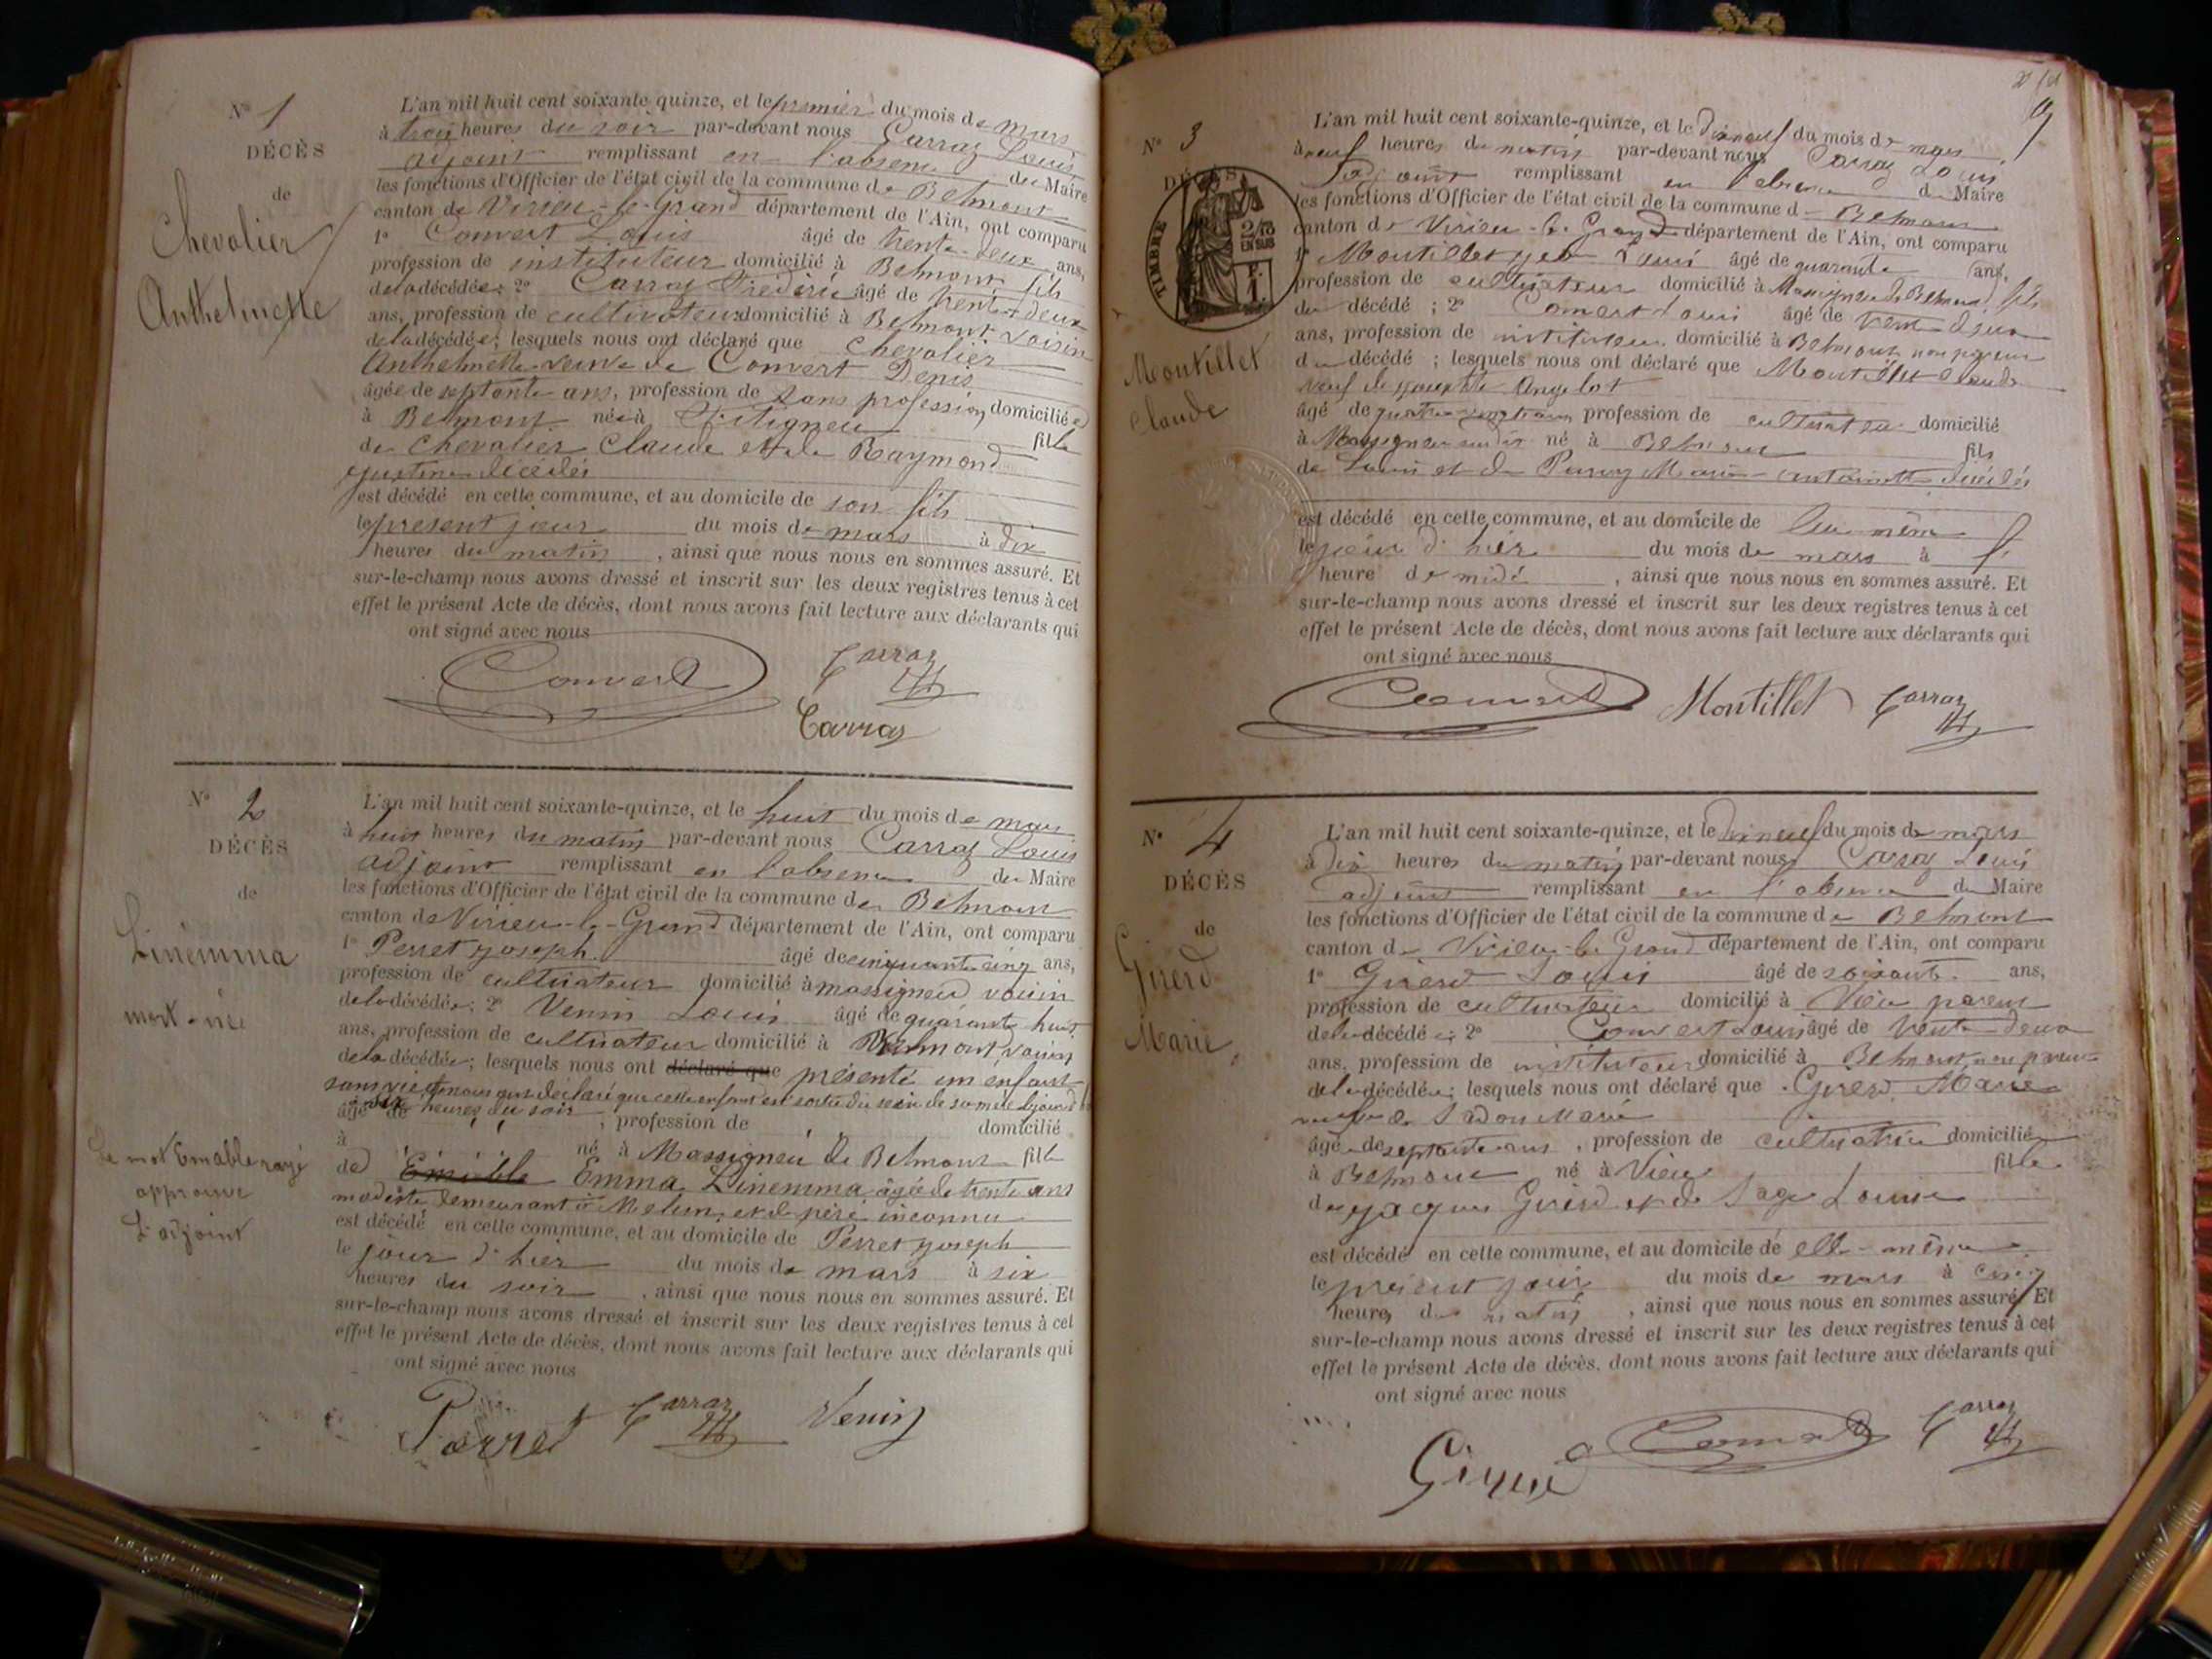 N° 1
DÉCÈS
de
Chevalier
Anthelmette
L'an mil huit cent soixante quinze, et le premier du mois de mars
à trois heures du soir par-devant nous Carraz Louis
adjoint remplissant en l'absence du Maire
les fonctions d'Officier de l'état civil de la commune de Belmont
canton de Virieu-le-Grand département de l'Ain, ont comparu
1° Convert Louis âgé de trente-deux ans,
profession de instituteur domicilié à Belmont fils
de la décédée; 2° Carraz Frédéric âgé de trente deux
ans, profession de cultivateur domicilié à Belmont voisin
de la décédée; lesquels nous ont déclaré que Chevalier
Anthelmette veuve de Convert Denis
âgée de septante ans, profession de sans profession domiciliée
à Belmont née à fille
de Chevalier Claude et de Raymond
décédés
est décédé en cette commune, et au domicile de son fils
le présent jour du mois de mars à dix
heures du matin, ainsi que nous nous en sommes assuré. Et
sur-le-champ nous avons dressé et inscrit sur les deux registres tenus à cet
effet le présent Acte de décès, dont nous avons fait lecture aux déclarants qui
ont signé avec nous
Convert Carraz
Carraz
N° 2
DÉCÈS
de
Linemma
mort-née
Le mot Emable rayé
approuvé
L'adjoint
L'an mil huit cent soixante-quinze, et le huit du mois de mars
à huit heures du matin par-devant nous Carraz Louis
adjoint remplissant en l'absence du Maire
les fonctions d'Officier de l'état civil de la commune de Belmont
canton de Virieu-le-Grand département de l'Ain, ont comparu
1° Perret Joseph âgé de cinquante cinq ans,
profession de cultivateur domicilié à massigneu voisin
de la décédée; 2° Venin Louis âgé de quarante huit
ans, profession de cultivateur domicilié à Belmont, voisin
de la décédée; lesquels nous ont déclaré que présenté un enfant
sans vie et nous ont déclaré que cette enfant est sortie du sein de sa mère le jour d'
âgé de six heures du soir, profession de domicilié
à né à Massigneu de Belmont fille
de Emma Linemma âgée de trente ans
modiste demeurant à Melun, et de père inconnu
est décédé en cette commune, et au domicile de Perret Joseph
le jour d'hier du mois de mars à six
heures du soir, ainsi que nous nous en sommes assuré. Et
sur-le-champ nous avons dressé et inscrit sur les deux registres tenus à cet
effet le présent Acte de décès, dont nous avons fait lecture aux déclarants qui
ont signé avec nous
Perret Carraz Venin
N° 3
DÉCÈS
TIMBRE
2/10
EN SUS
Montillet
Claude
L'an mil huit cent soixante-quinze, et le dixneuf du mois de mars
à neuf heures du matin par-devant nous Carraz Louis
adjoint remplissant en l'absence du Maire
les fonctions d'Officier de l'état civil de la commune de Belmont
canton de Virieu-le-Grand département de l'Ain, ont comparu
1° Montillet Louis âgé de quarante ans,
profession de cultivateur domicilié à Massigneu de Belmont fils
du décédé; 2° Convert Louis âgé de trente deux
ans, profession de instituteur domicilié à Belmont non parent
du décédé; lesquels nous ont déclaré que Montillet Claude
veuf de Angelot
âgé de profession de cultivateur domicilié
à Massigneu né à Belmont fils
de Louis et de Marie-antoinette décédés
est décédé en cette commune, et au domicile de lui même
le jour d'hier du mois de mars à
heure de midi, ainsi que nous nous en sommes assuré. Et
sur-le-champ nous avons dressé et inscrit sur les deux registres tenus à cet
effet le présent Acte de décès, dont nous avons fait lecture aux déclarants qui
ont signé avec nous
Convert Montillet Carraz
N° 4
DÉCÈS
de
Girerd
Marie
L'an mil huit cent soixante-quinze, et le dixneuf du mois de mars
à dix heures du matin par-devant nous Carraz Louis
adjoint remplissant en l'absence du Maire
les fonctions d'Officier de l'état civil de la commune de Belmont
canton de Virieu-le-Grand département de l'Ain, ont comparu
1° Girerd Louis âgé de soixante ans,
profession de cultivateur domicilié à Vieu parent
de la décédée; 2° Convert Louis âgé de trente-deux
ans, profession de instituteur domicilié à Belmont, non parent
de la décédée; lesquels nous ont déclaré que Girerd Marie
veuve de
âgée de septante ans, profession de cultivatrice domiciliée
à Belmont né à Vieu fille
de Jacques Girerd et de Sage Louise
est décédé en cette commune, et au domicile de elle-même
le présent jour du mois de mars à cinq
heures du matin, ainsi que nous nous en sommes assuré. Et
sur-le-champ nous avons dressé et inscrit sur les deux registres tenus à cet
effet le présent Acte de décès, dont nous avons fait lecture aux déclarants qui
ont signé avec nous
Girerd Convert Carraz